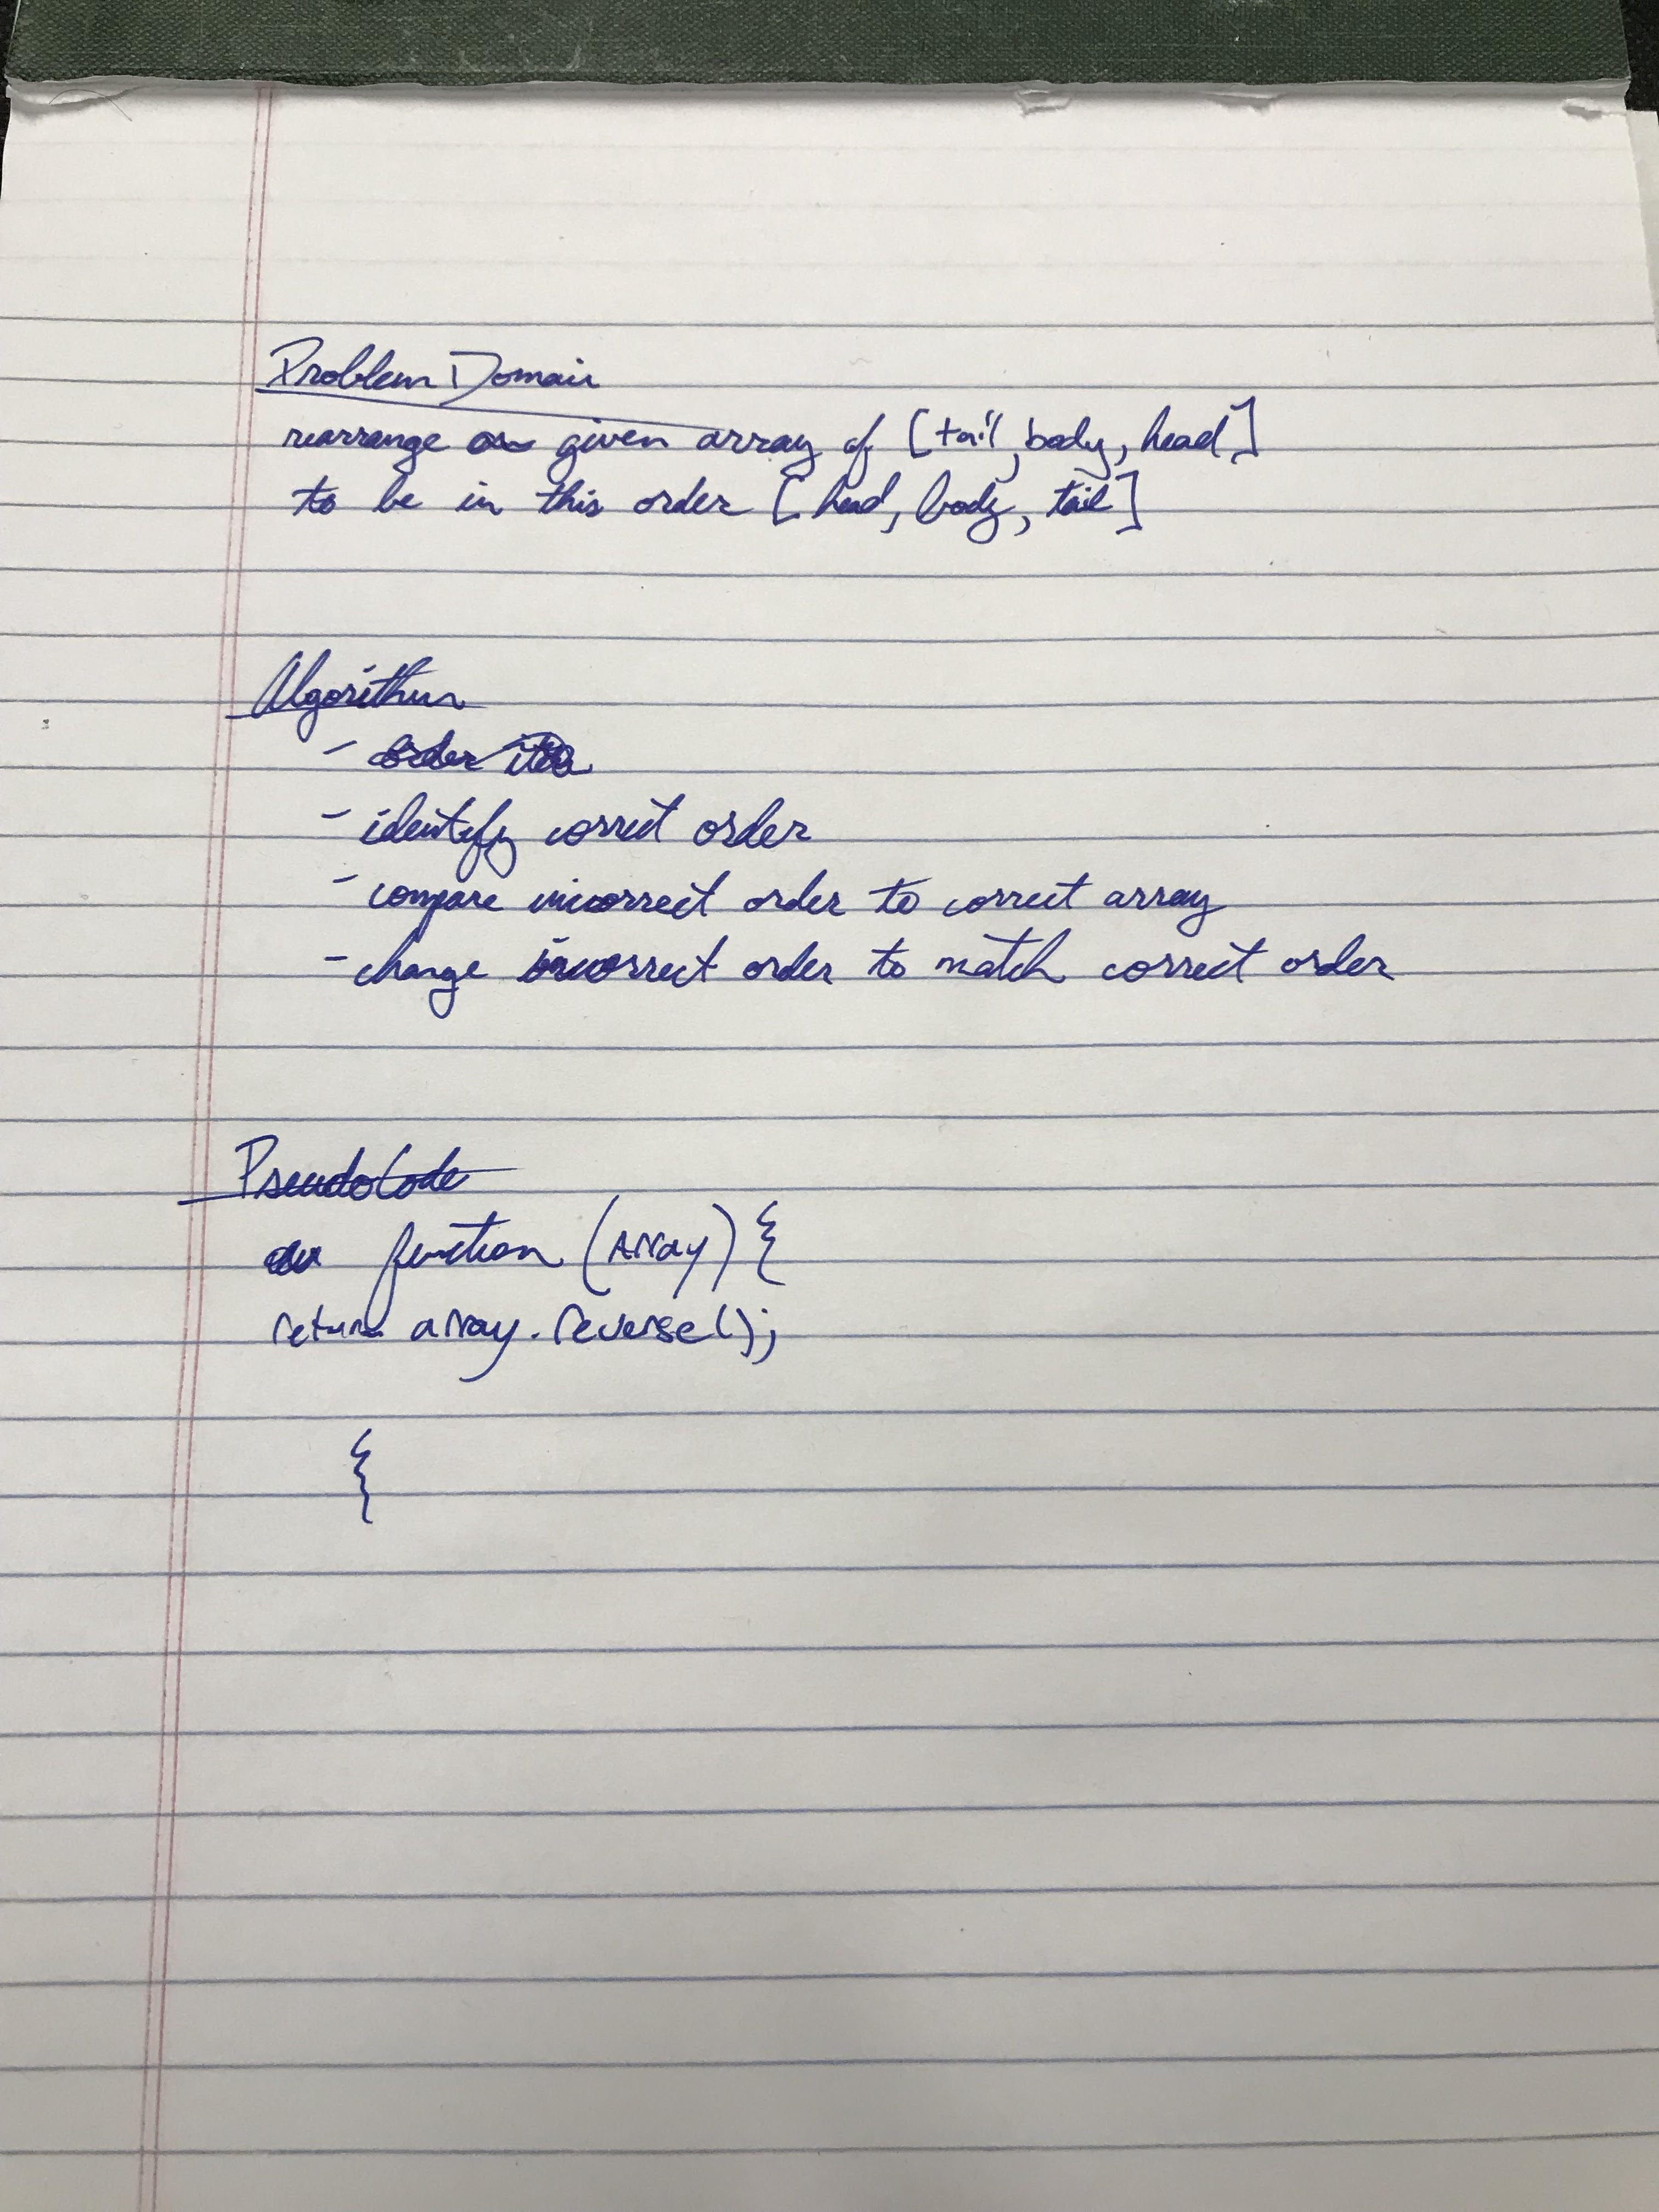 Problem Domain
rearrange a given array of [tail, body, head]
to be in this order [head, body, tail]
Algorithm
- order
- identify correct order
- compare incorrect order to correct array
- change incorrect order to match correct order
PseudoCode
function (Array) {
return array.reverse();
{